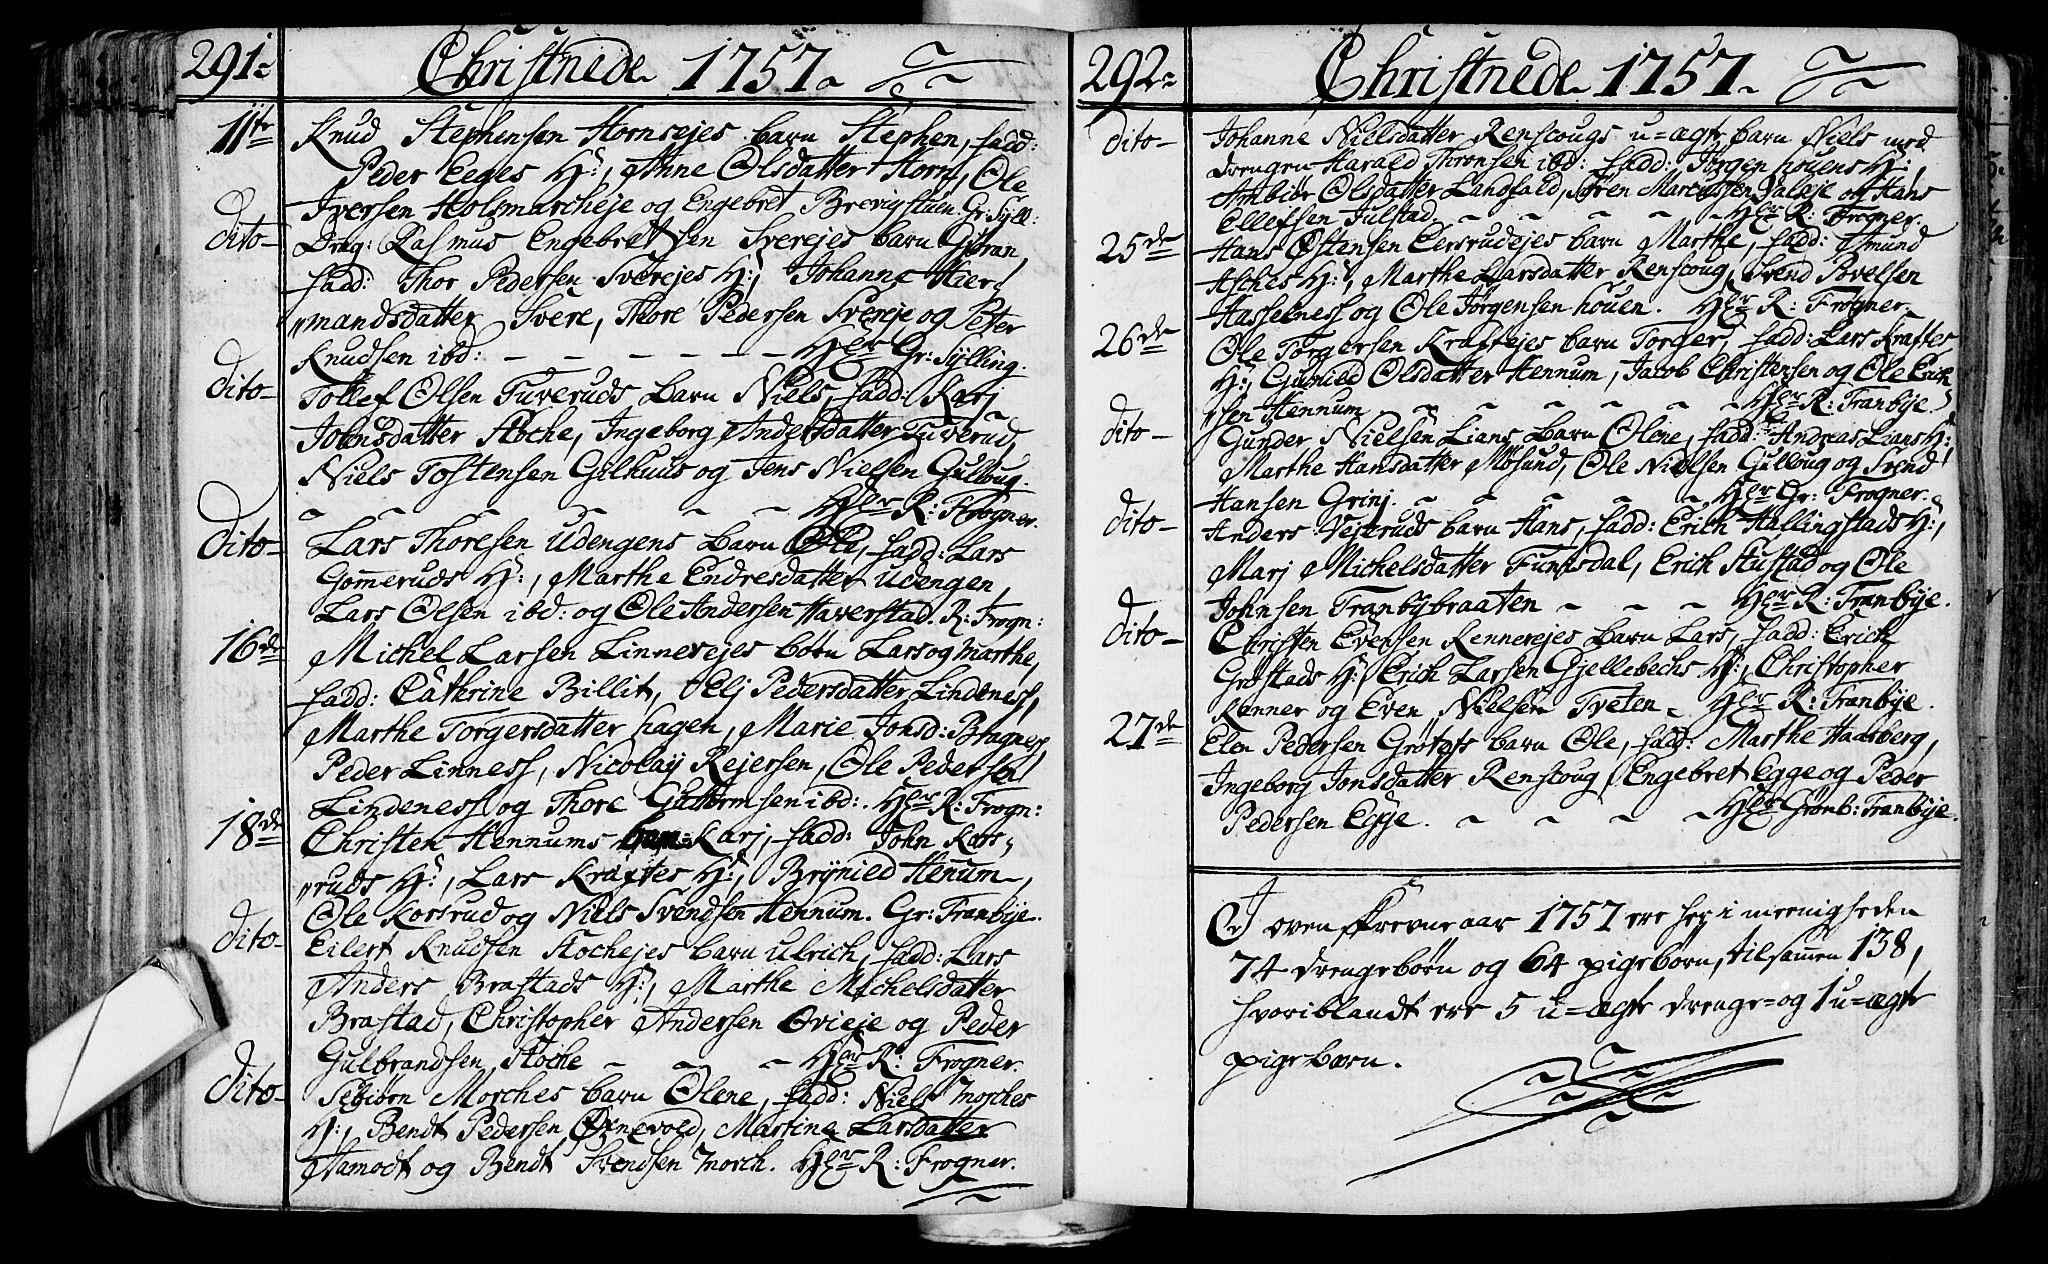 291.
Christnede 1757.
11te Knud Stephensen Hornsejes barn Stephen, fadd:
Peder Eeges H:, Anne Olsdatter Horn, Ole
Iversen Holsmarcheje og Engebret Brevigstuen. Gr: Syll:
dito- Drag: Rasmus Engebretsen Sverejes barn Gjøran,
fadd: Thor Pedersen Sverejes H:, Johanne Hier,
mandsdatter Svere, Thore Pedersen Svereje og Peter
Knudsen ibd: - - - - - - Hger Gr: Sylling.
dito- Tollef Olsen Tuveruds barn Niels, fadd: Karj
Johnsdatter Hoche, Ingeborg Andersdatter Tuverud,
Niels Tostensen Gilhuus og Jens Nielsen Gulloug.
Hger R: Frogner.
Dito- Lars Thoresen Udengens barn Ole, fadd: Lars
Gommeruds H:, Marthe Endresdatter Udengen
Lars Olsen ibd: og Ole Andersen Haverstad. R: Frogn:
16de Michel Larsen Linnerejes børn Lars og Marthe,
fadd: Cathrine Billit, Elj Pedersdatter Lindeness,
Marthe Torgersdatter hagen, Marie Jonsd: Bragness
Peder Linness, Nicolay Rejersen, Ole Pedersen
Lindeness og Thore Guttormsen ibd:. Hger R: Frogn:
18de Christen Hennums barn Karj, fadd: John Kors,
ruds H:, Lars Kraftes H:, Brynild Hennum,
Ole Korsrud og Niels Svendsen Hennum. Gr: Tranbye.
dito- Eilert Knudsen Hochejes barn Ulrich, fadd: Lars
Anders Brastads H:, Marthe Michelsdatter
Brastad, Christopher Andersen Ovieje og Peder
Gulbrandsen Hoche - - - Hger R: Frogner.
dito- Sebiørn Morches barn Olene, fadd: Niels Morches
H:, Bendt Pedersen Ørnevold, Martine Larsdatter
Aamodt og Bendt Svendsen Morch. Hger R: Frogner.
292.
Christnede 1757.
dito- Johanne Nielsdatter Renscougs u=ægte barn Niels med
drengen Harald Thronsen ibd: fadd: Jørgen houens H:,
Ambiør Olsdatter Landfald, Søren Marcussen Valeje og Hans
Ellefsen Julstad - - - - - Hger R: Frogner.
25de Hans Østensen Eersrudejes barn Marthe, fadd: Amund
Asches H:, Marthe Larsdatter Renscoug, Svend Povelsen
Hasselness og Ole Jørgensen houen. Hger R: Frogner.
26de Ole Torgersen Kraftejes barn Torger, fadd: Lars Kraftes
H:, Gunild Olsdatter Hennum, Jacob Christensen og Ole Erich
sen Hennum - - - - - Hger R: Tranbye.
dito- Gunder Nielsen Lians barn Olene, fadd: Andreas Lians H:,
Marthe Hansdatter Møsund, Ole Nielsen Gulloug og Svend
Hansen Grinj. - - - - - Hger Gr: Frogner.
dito- Anders Vejeruds barn Hans, fadd: Erich Hallingstads H:,
Marj Michelsdatter Funtsdal, Erich Hustad og Ole
Johnsen Tranbybraaten - - - Hger R: Tranbye.
dito- Christen Evensen Rennerejes barn Lars, fadd: Erich
Grøstads H:, Erich Larsen Gjellebechs H:, Christopher
Renner og Even Nielsen Tveten - Hger R: Tranbye.
27de Elen Pedersen Grøtets barn Ole, fadd: Marthe Haarberg,
Ingeborg Jonsdatter Renscoug, Engebret Egge og Peder
Pedersen Egge. - - - - Hger Grønb: Tranbye.
I ovenskrevne aar 1757 ere her i meenigheden
74 drengebørn og 64 pigebørn, tilsammen 138,
hvoriblandt ere 5 u=ægte drenge= og 1 u=ægte
pigebarn.